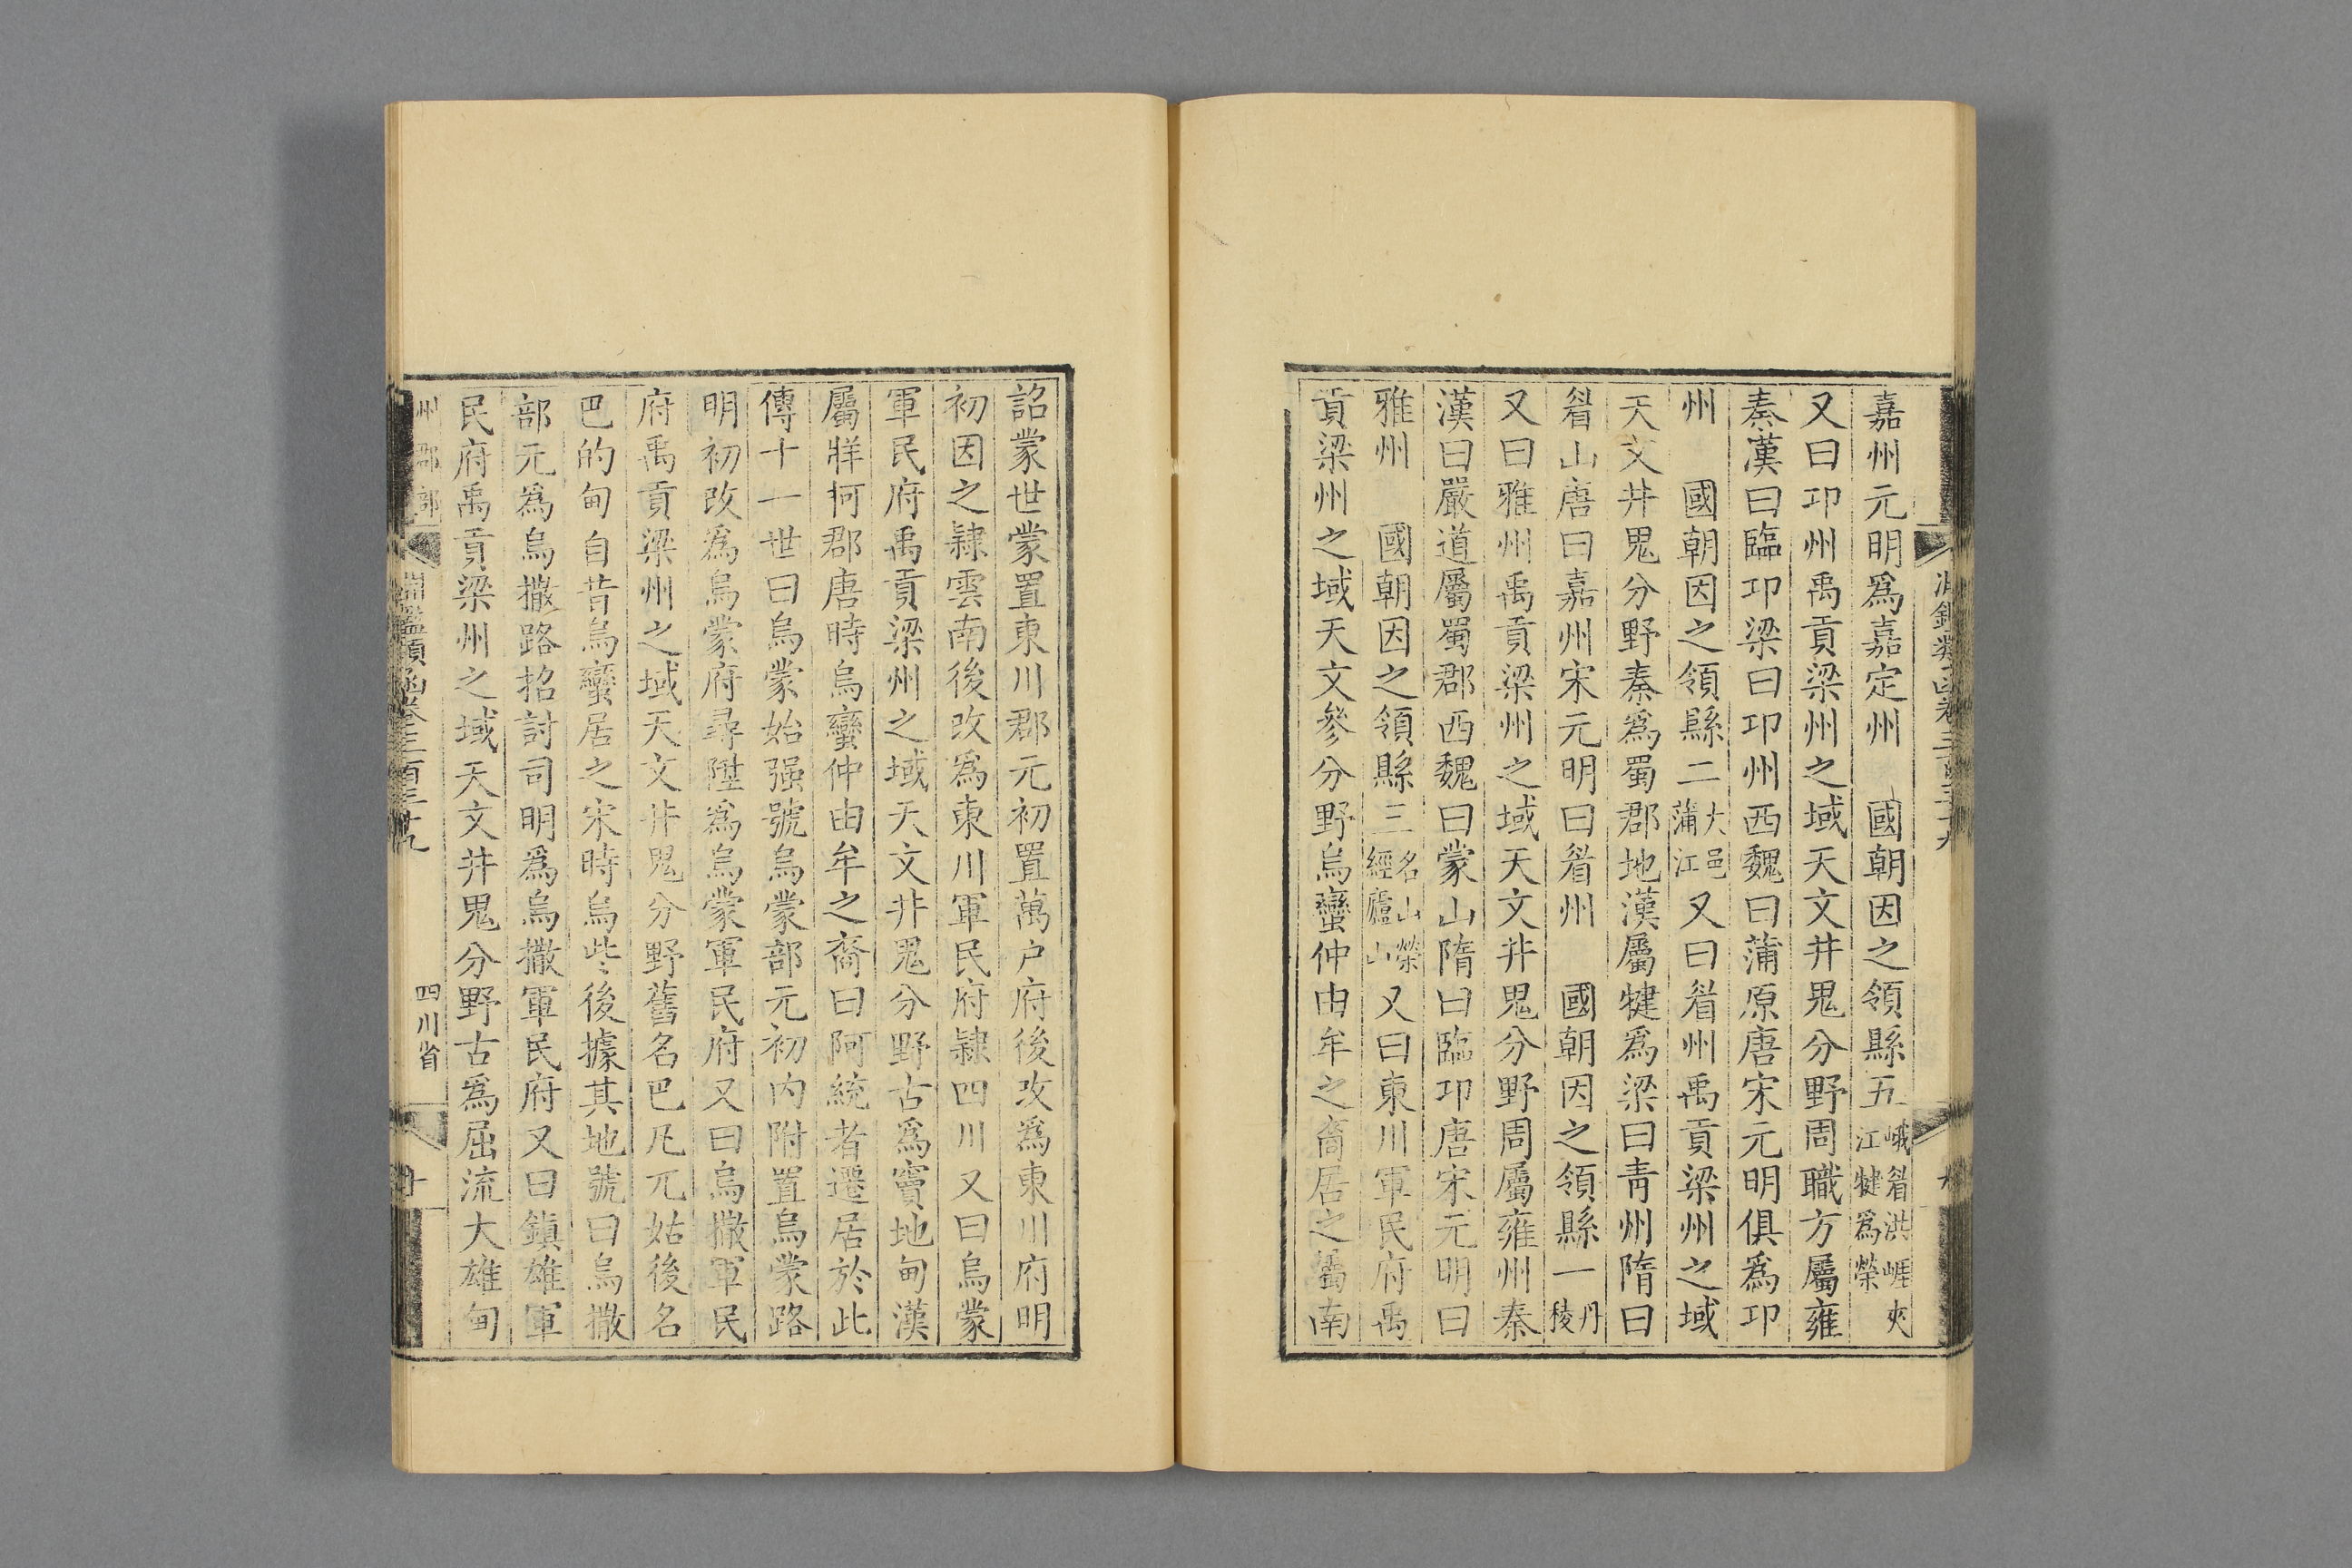 嘉州元明爲嘉定州 國朝因之領縣五峨眉洪崖夾江犍爲榮
又曰邛州禹貢梁州之域天文井鬼分野周職方屬雍
秦漢曰臨邛梁曰邛州西魏曰蒲原唐宋元明俱爲邛
州 國朝因之領縣二大邑蒲江又曰眉州禹貢梁州之域
天文井鬼分野秦爲蜀郡地漢屬犍爲梁曰青州隋曰
眉山唐曰嘉州宋元明曰眉州 國朝因之領縣一丹稜
又曰雅州禹貢梁州之域天文井鬼分野周屬雍州秦
漢曰嚴道屬蜀郡西魏曰蒙山隋曰臨邛唐宋元明曰
雅州 國朝因之領縣三名山榮經廬山又曰東川軍民府禹
貢梁州之域天文參分野烏蠻仲由牟之裔居之蜀南
詔蒙世蒙置東川郡元初置萬户府後改爲東川府明
初因之隸雲南後改爲東川軍民府隸四川又曰烏蒙
軍民府禹貢梁州之域天文井鬼分野古爲竇地甸漢
屬牂柯郡唐時烏蠻仲由牟之裔曰阿統者遷居於此
傳十一世曰烏蒙始强號烏蒙部元初内附置烏蒙路
明初改爲烏蒙府尋陞爲烏蒙軍民府又曰烏撒軍民
府禹貢梁州之域天文井鬼分野舊名巴凡兀姑後名
巴的甸自昔烏蠻居之宋時烏些後據其地號曰烏撒
部元爲烏撒路招討司明爲烏撒軍民府又曰鎮雄軍
民府禹貢梁州之域天文井鬼分野古爲屈流大雄甸
州郡部 淵鑑類函卷三百三十九 四川省 十